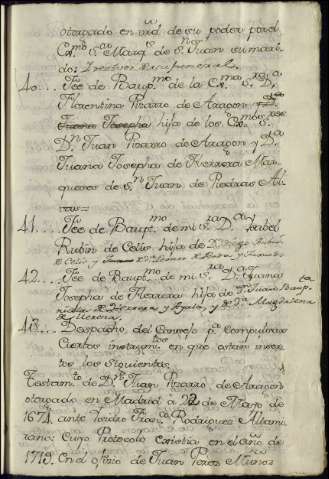 otorgado en virtud de su poder por el
Exmo Sor Marqs de Sn Juan su mari-
do:
40... Fee de Baupmo de la Exma Sra Da
Florentina Pizarro de Aragon
Juana Josepha hija de los Exmos Sres
Dn Juan Pizarro de Aragon y Da
Juana Josepha de Herrera Mar-
queses de Sn Juan de Piedras Al-
vas
41... Fee de Baupmo de mi Sra Da Isabel
Rubin de Celis hija de Dn Diego Rubin
de Celis y
42... Fee de Baupmo de mi Sra Da Juana
Josepha de Herrera hija de Dn Juan Baupta
de Herrera y Ayala, y de Da Magdalena
de Herrera
43... Despacho del Consejo pa Compulsar
Ciertos instrumtos en que estan inser-
tos los siguientes
Testamto de Dn Juan Pizarro de Aragon
otorgado en Madrid a 22 de Marzo de
1674 ante Pedro Franco Rodriguez Altami-
rano: Cuyo Protocolo existia en el año de
1719. En el ofizio de Juan Perez